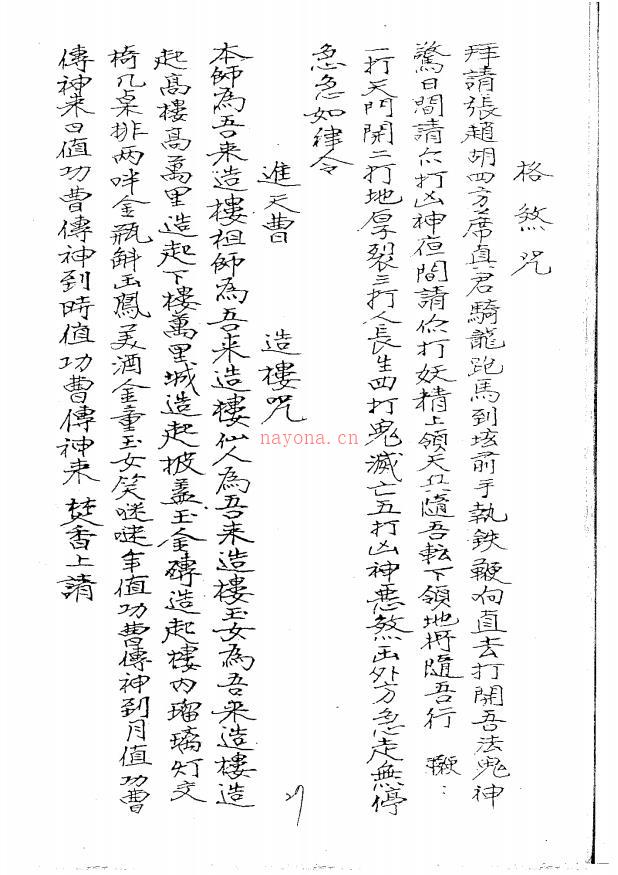 格煞咒
拜請張趙胡四方席真君騎龍跑馬到垓前手執鉄鞭向直去打開吾法鬼神
驚日間請你打凶神夜間請你打妖精上領天兵隨吾転下領地將隨吾行 鞭:
一打天門開二打地厚裂三打人長生四打鬼滅亡五打凶神惡煞出外方急走無停
急急如律令
進天曹 造樓咒
本師為吾来造樓祖師為吾来造樓仙人為吾来造樓玉女為吾来造樓造
起高樓高萬里造起下樓萬里城造起披蓋玉金磚造起樓內瑠璃灯交
椅几桌排两咩金瓶斟玉鳳美酒金童玉女笑咪咪年值功曹傳神到月值功曹
傳神来日值功曹傳神到時值功曹傳神来 焚香上請
27
nayona.cn